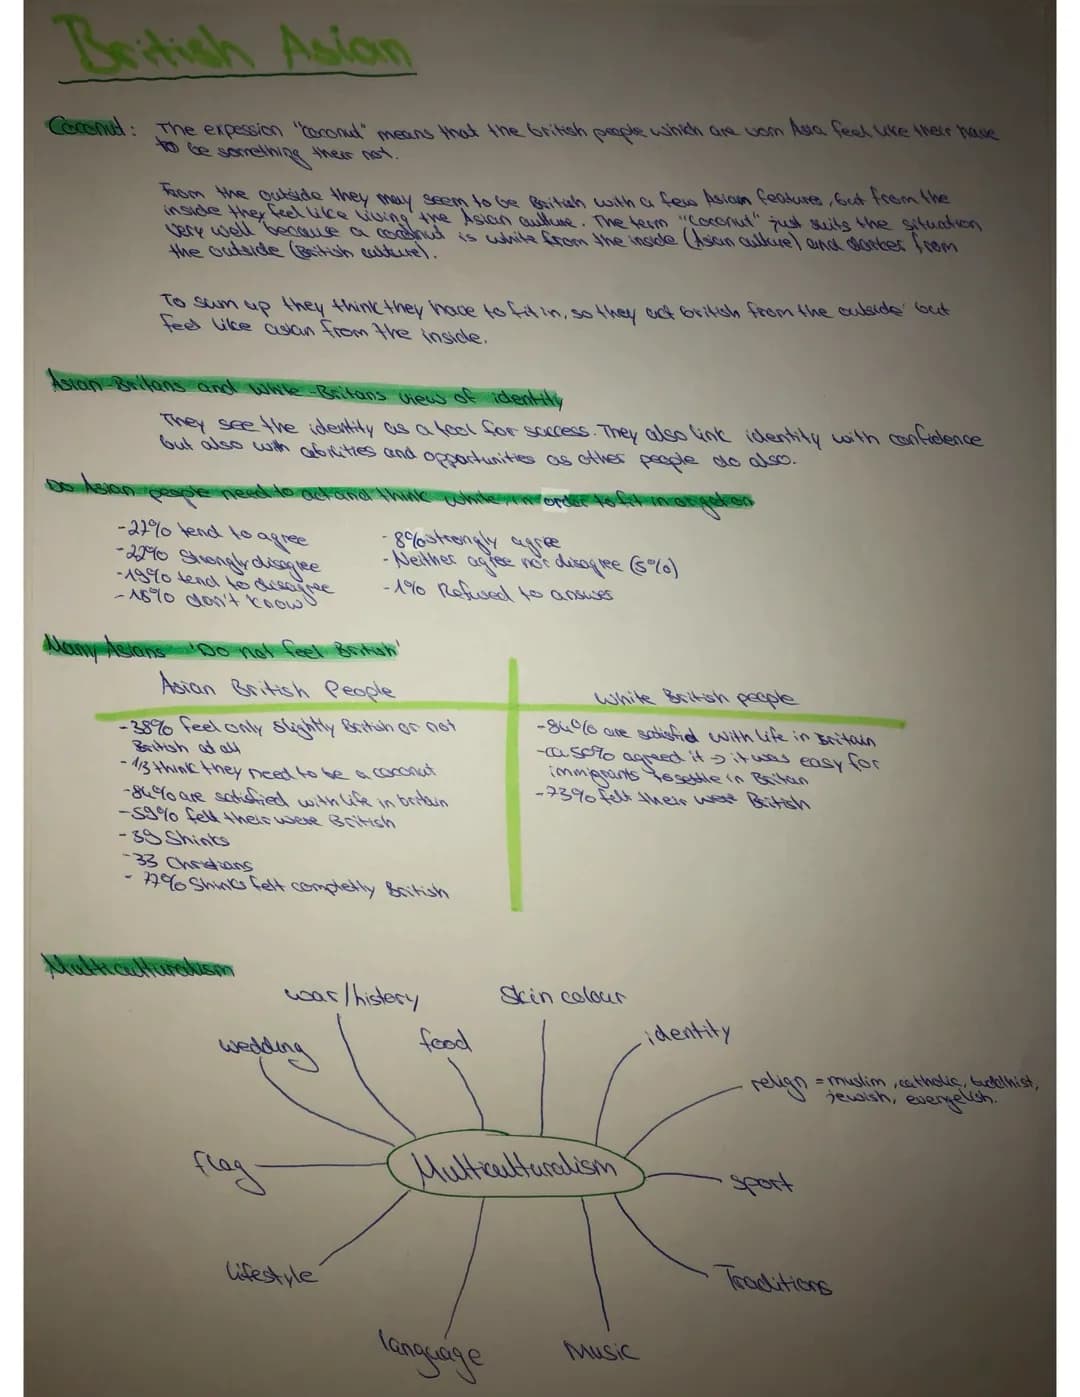 British Asian
Coconut: The expession "coconut" means that the british people which are vom Asia feel like their have
to be something their not.
From the outside they may seem to be British with a few Asian features, but from the
inside they feel like living the Asian culture. The term "Coconut" just suits the situation
very well because a coconut is white from the inside (Asian culture) and darker from
the outside (British culture).
To sum up they think they have to fit in, so they act british from the outside but
feel like asian from the inside.
Asian-Britans and White-Britans view of identity
They see the identity as a tool for success. They also link identity with confidence
but also with abilities and opportunities as other people do also.
Do Asian people need to act and think white, in order to fit in or get on
-27% tend to agree
-8% strongly agree
-22% Strongly disagree
-Neither agree nor disagree (5%)
-19% tend to disagree
-1% Refused to answer
-18% don't know
Many Asians 'Do not feel British'
Asian British People
White British people
-38% feel only slightly British or not
British at all
-84% are satisfied with life in Britain
-1/3 think they need to be a coconut
-ca. 50% agreed it → it was easy for
immigrants to settle in Britan
-84% are satisfied with life in britain
-73% felt their were British
-59% fell their were British
-39 Shinks
-33 Christians
- 77% Shinks felt completly British
Multiculturalism
war/history
Skin colour
wedding
food
identity
relign = muslim, catholic, buddhist,
jewish, evengelish.
flag
Multiculturalism
sport
lifestyle
Traditions
language
Music